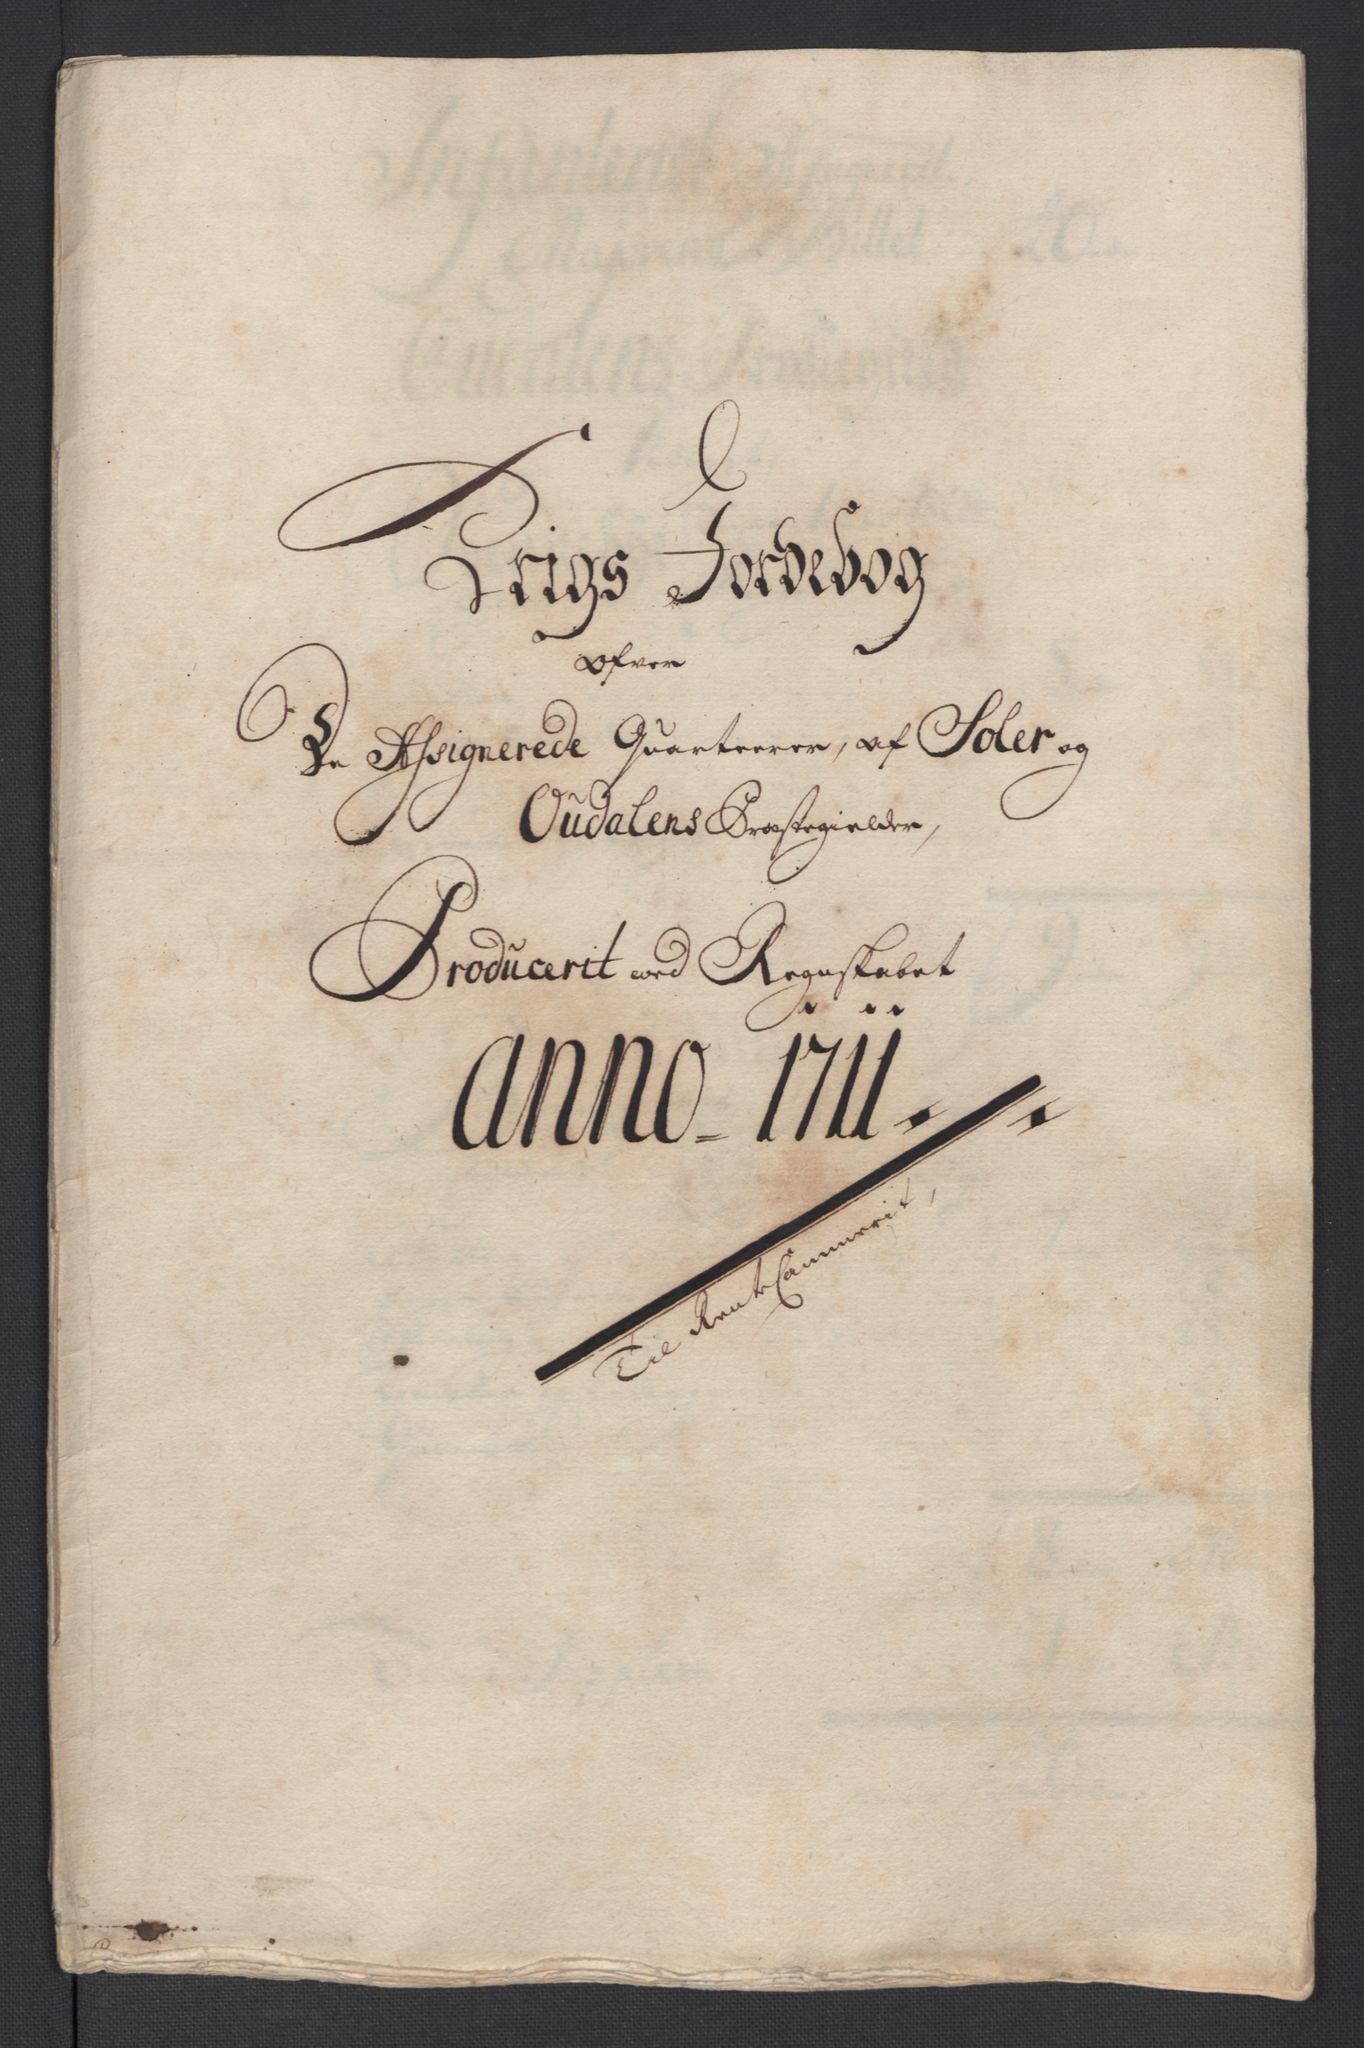 Krigs Jordebog
ofver
De Assignerede Quarterer, af Soler og
Oudalens Præstegielder,
Producerit ved Regnskabet
anno 1711.
Til RentCammerit,